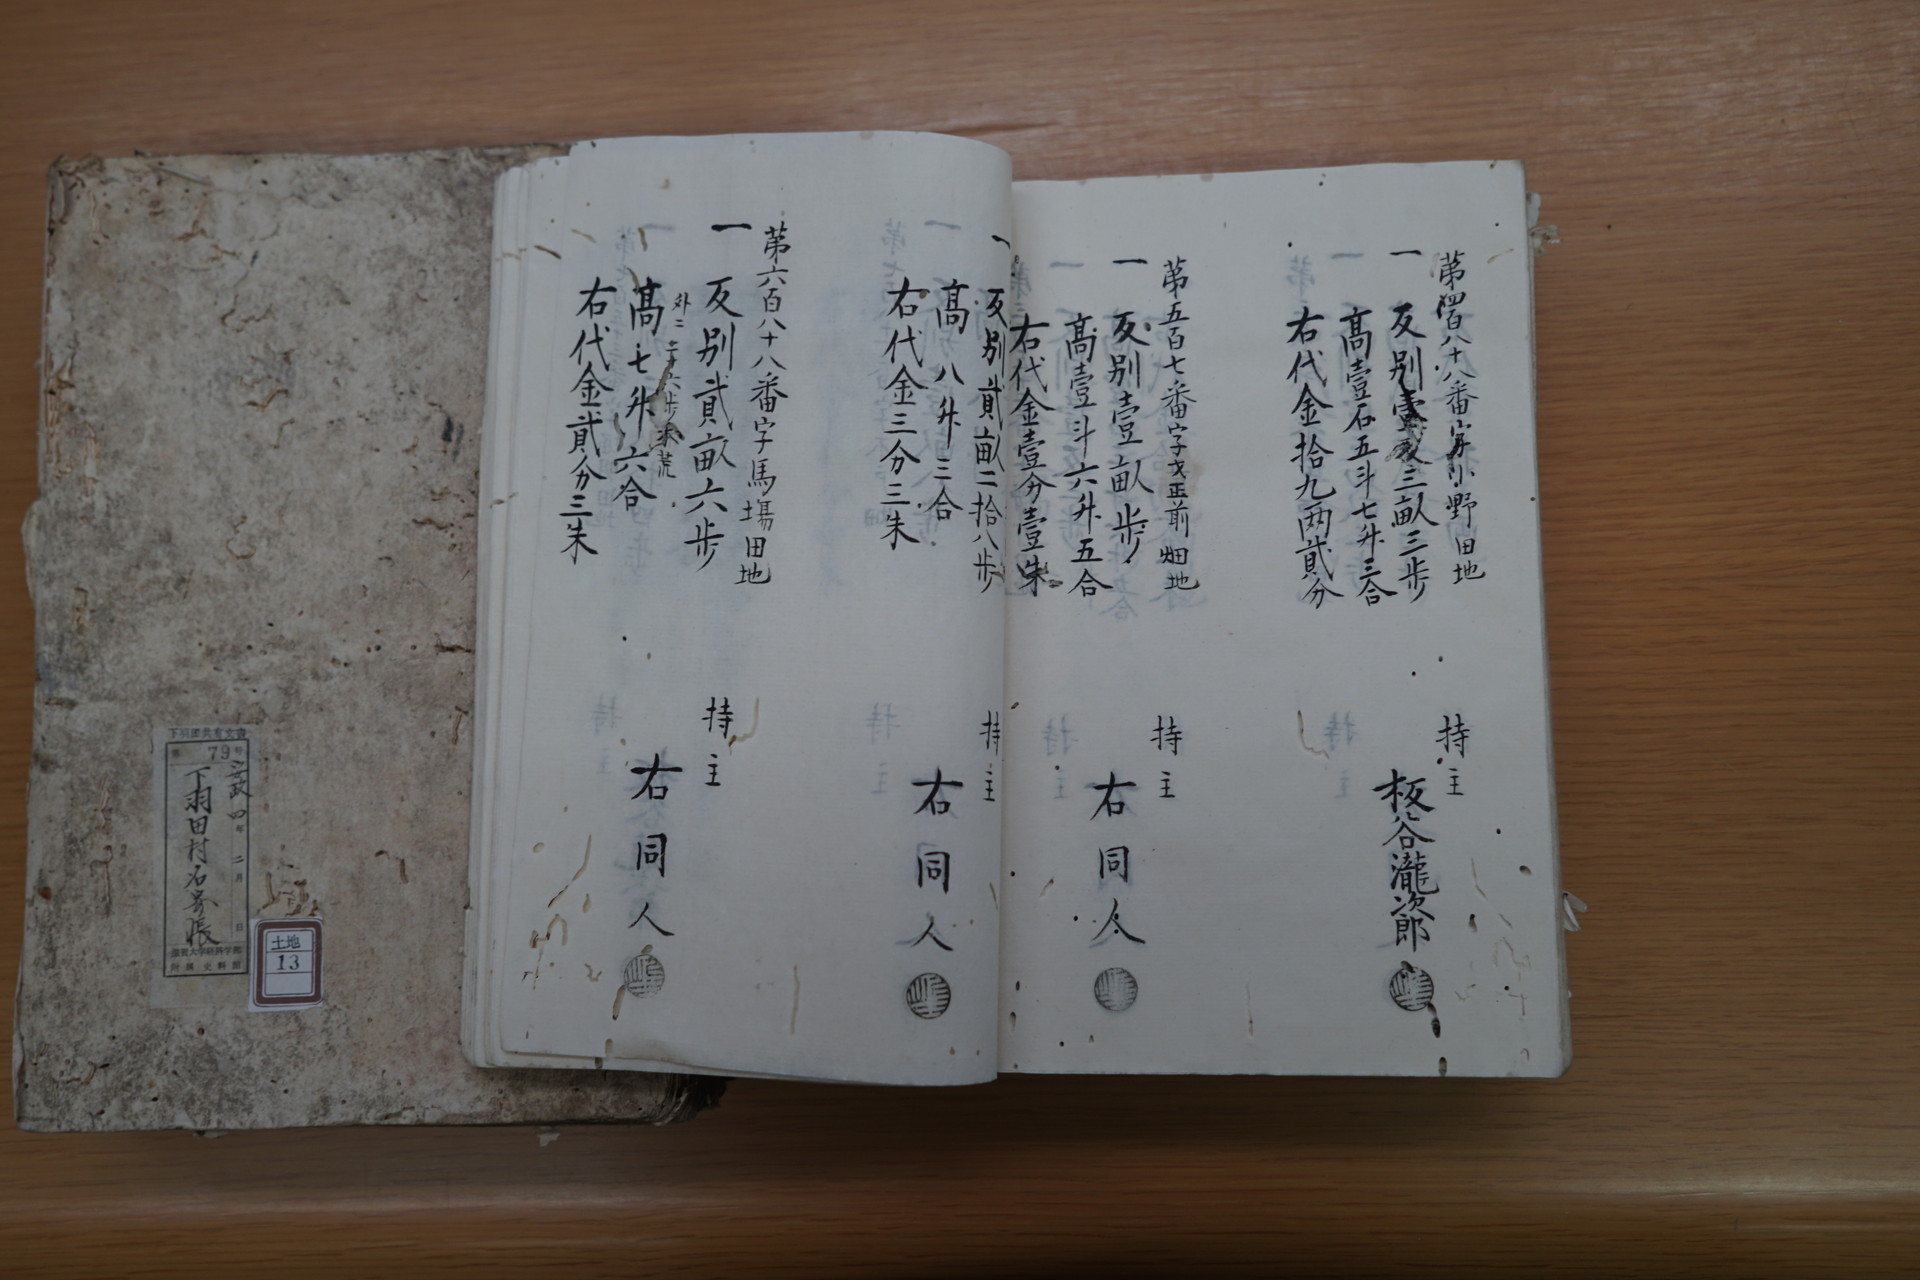 第四百八十八番字小野田地
一 反別壹反三畝三歩
高壹石五斗七升三合
右代金拾九両貳分
持主
板谷瀧次郎
第五百七番字 前畑地
一 反別壹畝歩
高壹斗六升五合
右代金壹分壹朱
持主
右同人
一 反別貳畝二拾八歩
高八升三合
右代金三分三朱
持主
右同人
第六百八十八番字馬場田地
一 反別貳畝六歩
外ニ 六歩 荒
高七升六合
右代金貳分三朱
持主
右同人
下羽田共有文書
第 79号
政四年二月 日
下羽田村名寄帳
滋賀大学経済学部
附属史料館
土地
13